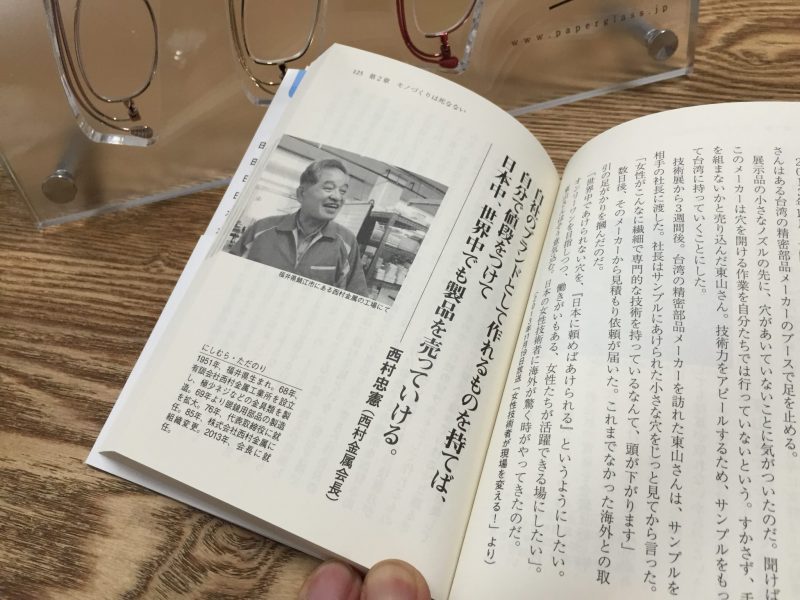 さんはある台湾の精密部品メーカーのブースで足を止める。
展示品の小さなノズルの先に、穴があいていないことに気がついたのだ。聞けば
このメーカーは穴を開ける作業を自分たちでは行っていないという。すかさず、手
を組まないかと売り込んだ東山さん。技術力をアピールするため、サンプルをもっ
て台湾に持っていくことにした。
技術展から3週間後。台湾の精密部品メーカーを訪れた東山さんは、サンプルを
相手の社長に渡した。社長はサンプルにあけられた小さな穴をじっと見てから言った。
「女性がこんなに繊細で専門的な技術を持っているなんて、頭が下がります」
数日後、そのメーカーから見積もり依頼が届いた。これまでなかった海外との取
引の足がかりを掴んだのだ。
「世界中であけられない穴を、『日本に頼めばあけられる』というようにしたい。
オンリーワンを目指しつつ、働きがいもある、女性たちが活躍できる場にしたい」。
日本の女性技術者に海外が驚く時がやってきたのだ。
11月19日放送「女性技術者が現場を変える！」より）
125 第2章 モノづくりは死なない
自社のブランドとして作れるものを持てば、
自分で値段をつけて
日本中、世界中でも製品を売っていける。
西村忠憲（西村金属会長）
福井県鯖江市にある西村金属の工場にて
にしむら・ただのり
1951年、福井県生まれ。68年、
有限会社西村金属工業所を設立
し、極小ネジなどの金具類を製
造。69年より眼鏡用部品の製造
を拡大。76年、代表取締役に就
任。85年、株式会社西村金属に
組織変更。2013年、会長に就
任。
www.paperglass.jp